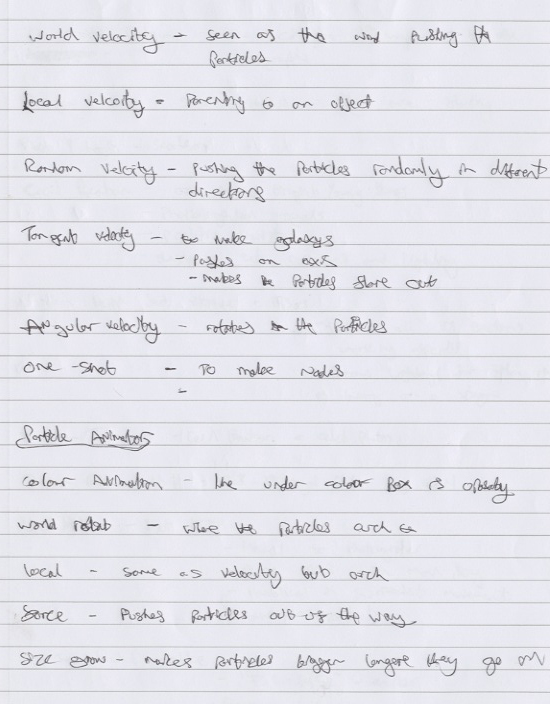 World velocity - seen as the wind pushing the
Particles
Local velcoity - Parenting to an object
Random Velcity - pushing the Particles randomly in different
directions
Tangent velocity - to make galaxys
- Pushes on axis
- makes the Particles flare out
Angular velocity - rotates the Particles
One-Shot - To make Nades
-
Particle Animator
colour Animation - the under colour Box is opacity
world rotat - where the particles arch
local - same as velocity but arch
force - Pushes Particles out of the way
Size grow - makes particles bigger longere they go on